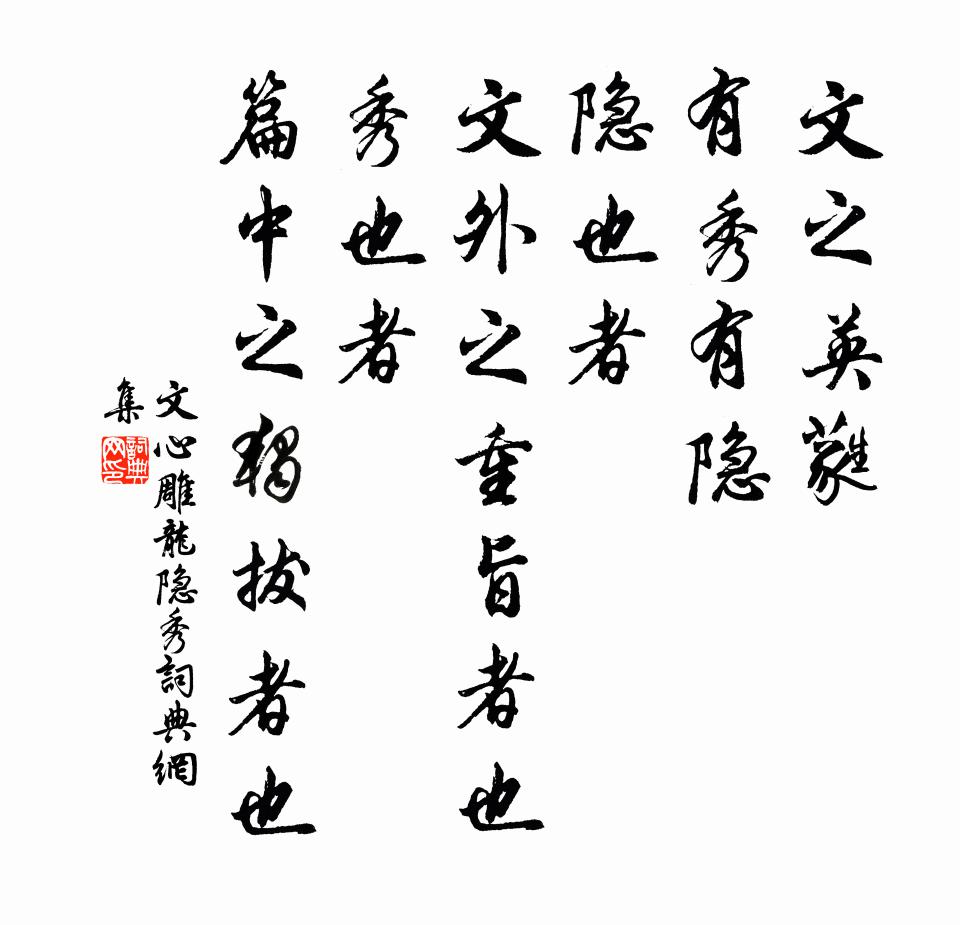 文之英蕤
有秀有隐
隐也者
文外之重旨者也
秀也者
篇中之独拔者也
文心雕龍隐秀詞典網
集
詞典网印